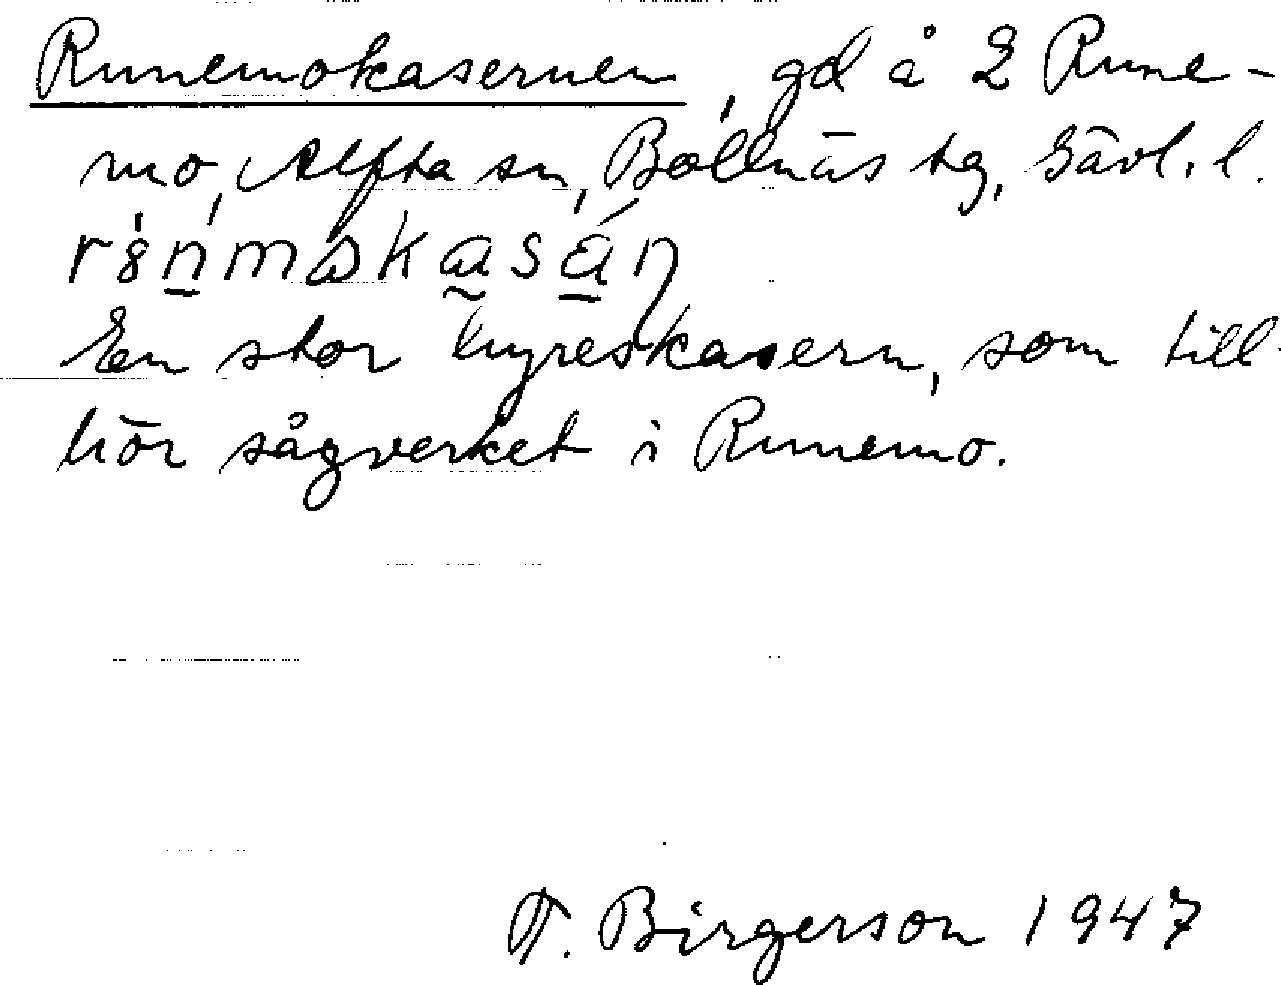 Runemokasernen, gd å 2 Rune-
mo, Alfta sn, Bollnäs tg, Gävl. l.
En stor hyreskasern, som till-
hör sågverket i Runemo.
T. Birgerson 1947